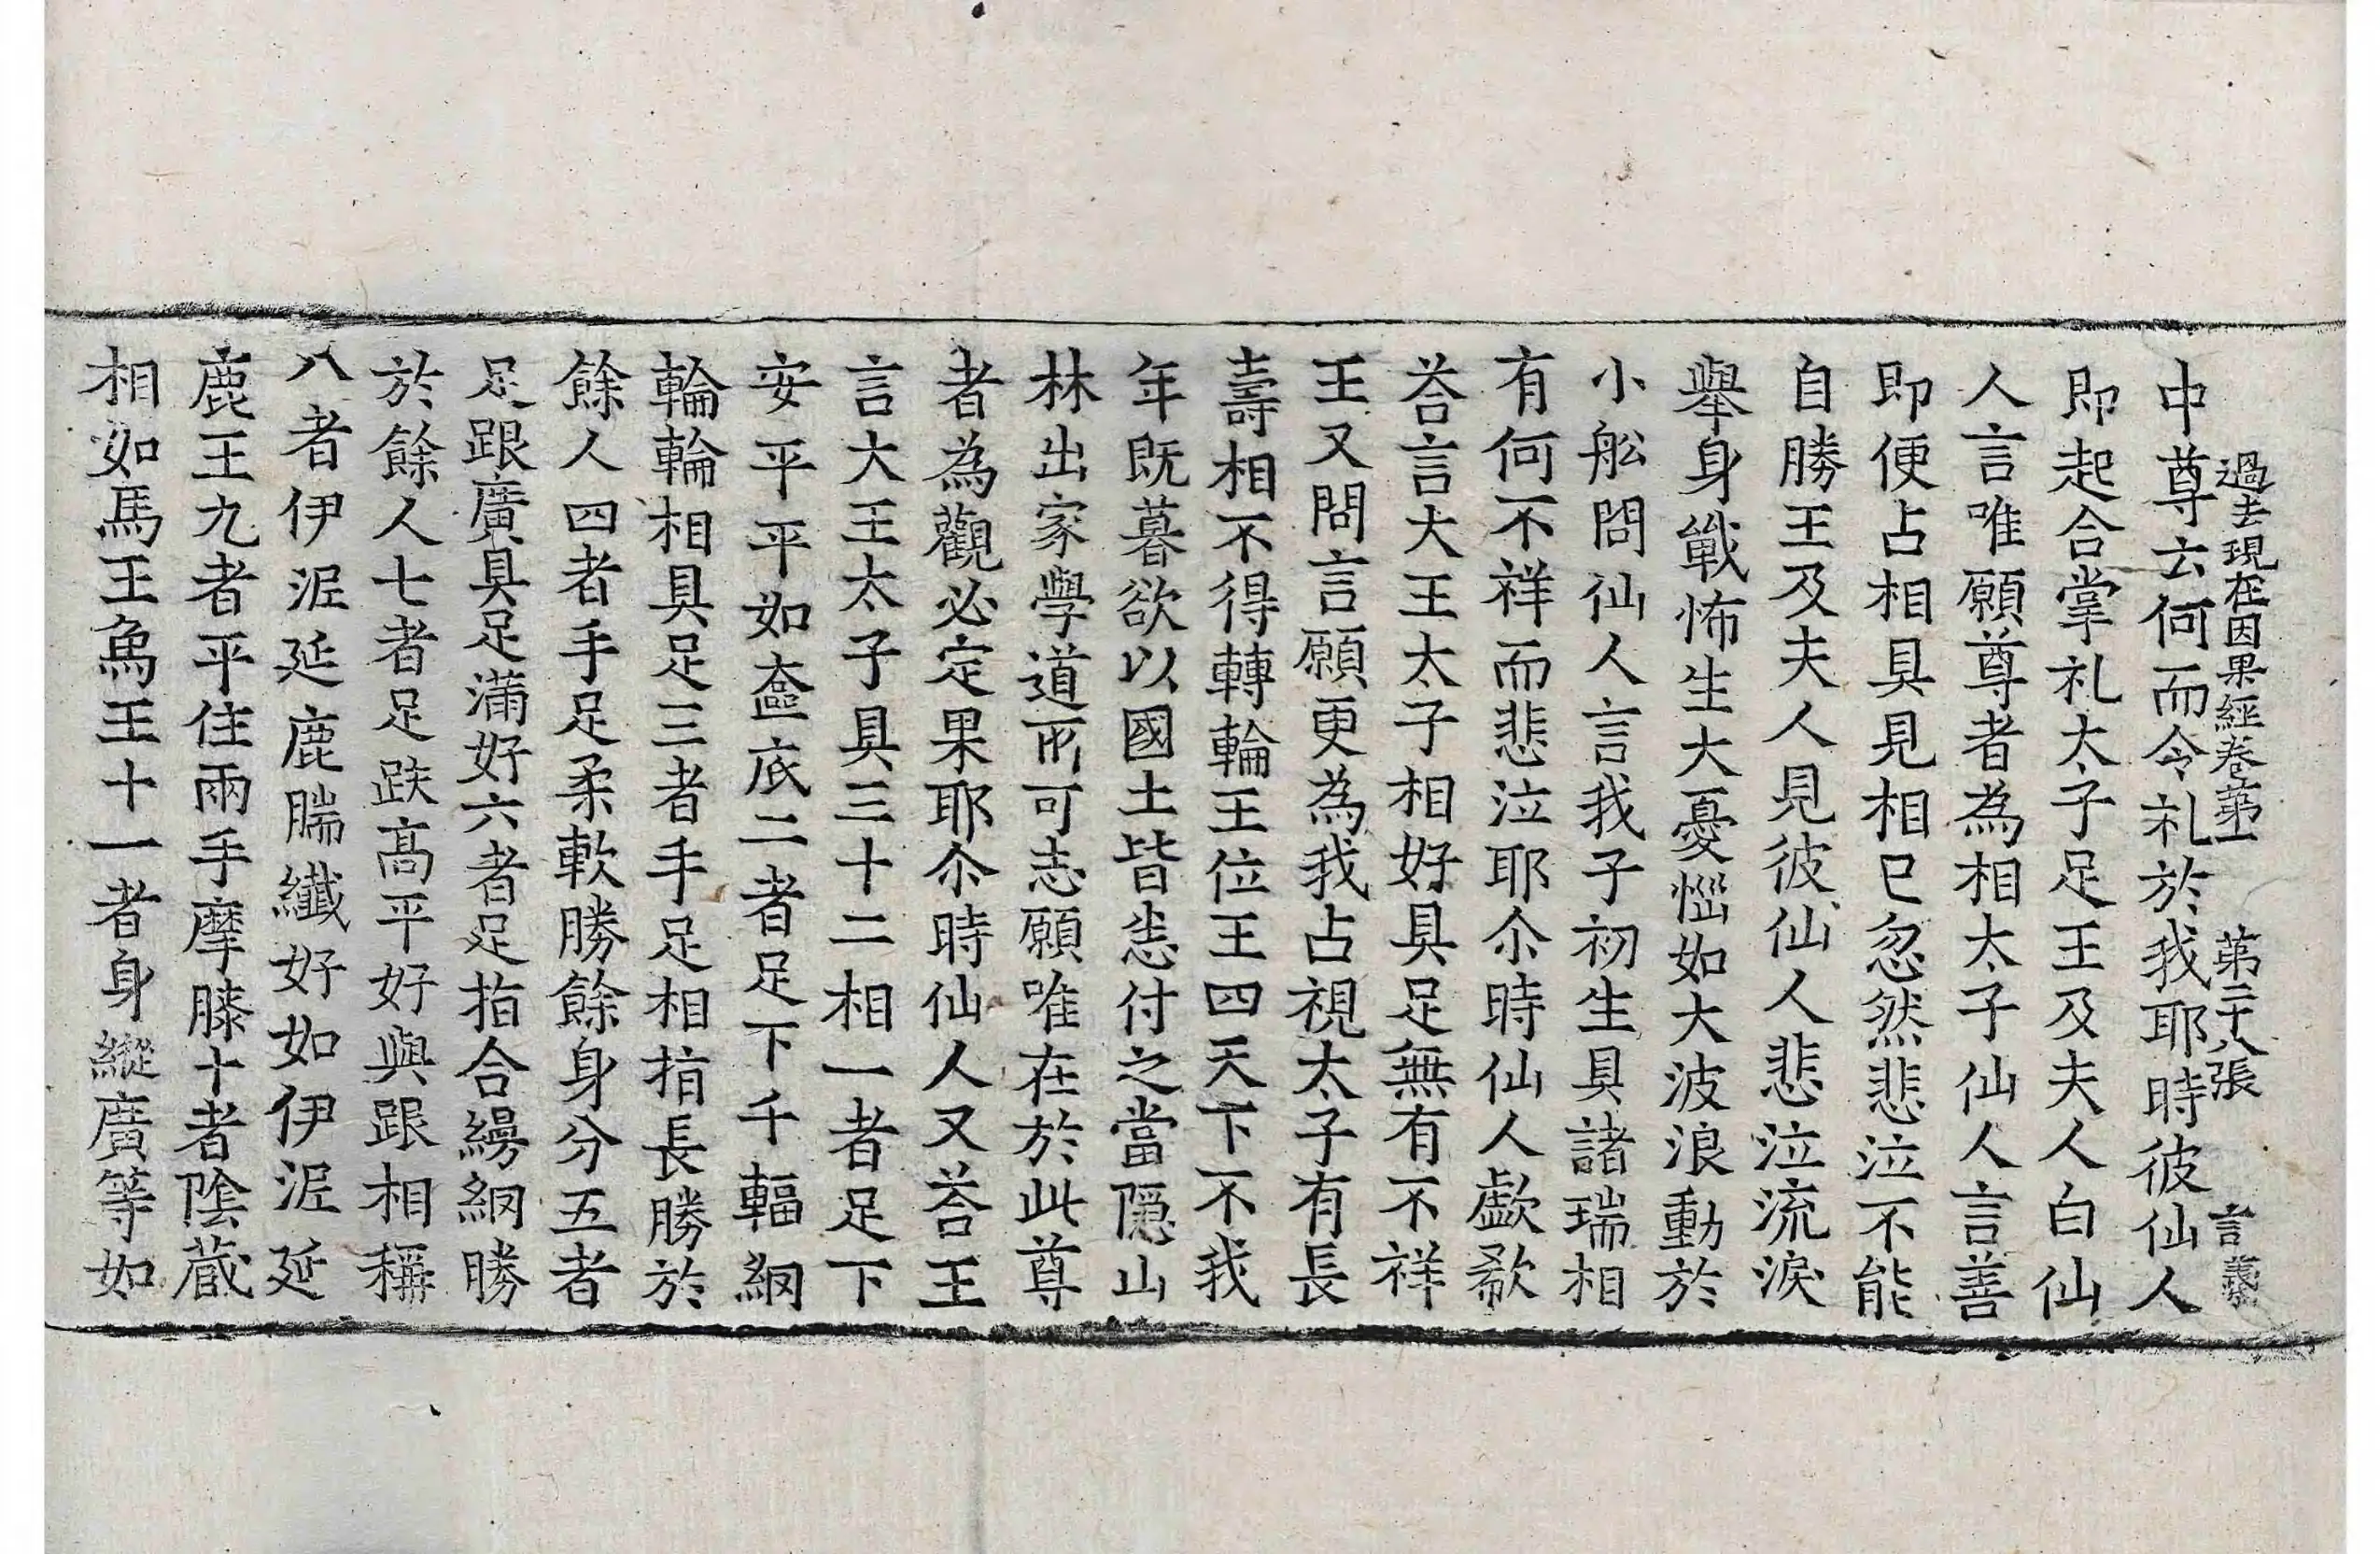 過去現在因果經卷第一 第二十八張 言
中尊云何而令礼於我耶時彼仙人
即起合掌礼太子足王及夫人白仙
人言唯願尊者為相太子仙人言善
即便占相具見相已忽然悲泣不能
自勝王及夫人見彼仙人悲泣流淚
舉身戰怖生大憂惱如大波浪動於
小舩問仙人言我子初生具諸瑞相
有何不祥而悲泣耶尒時仙人歔欷
荅言大王太子相好具足無有不祥
王又問言願更為我占視太子有長
壽相不得轉輪王位王四天下不我
年既暮欲以國土皆悉付之當隱山
林出家學道所可志願唯在於此尊
者為觀必定果耶尒時仙人又荅王
言大王太子具三十二相一者足下
安平平如奩底二者足下千輻網
輪輪相具足三者手足相指長勝於
餘人四者手足柔軟勝餘身分五者
足跟廣具足滿好六者足指合縵網勝
於餘人七者足趺高平好與跟相稱
八者伊泥延鹿腨纖好如伊泥延
鹿王九者平住兩手摩膝十者陰蔵
相如馬王象王十一者身縱廣等如